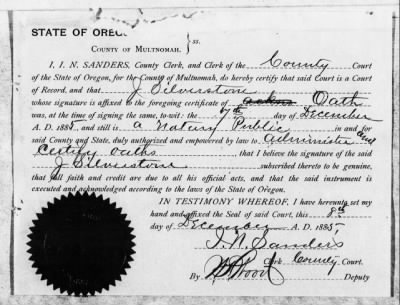 STATE OF OREGO
COUNTY OF MULTNOMAH. } ss.
I, I. N. SANDERS, County Clerk, and Clerk of the County Court
of the State of Oregon, for the County of Multnomah, do hereby certify that said Court is a Court of
Record, and that J Silverstone
whose signature is affixed to the foregoing certificate of Oath
was, at the time of signing the same, to-wit: the 7th day of December
A. D. 1885 and still is a Notary Public in and for
said County and State, duly authorized and empowered by law to administer and
certify oaths, that I believe the signature of the said
J Silverstone subscribed thereto to be genuine,
that full faith and credit are due to all his official acts, and that the said instrument is
executed and acknowledged according to the laws of the State of Oregon.
IN TESTIMONY WHEREOF, I have hereunto set my
hand and affixed the Seal of said Court, this 8th
day of December A. D. 1885
I. N. Sanders
Clerk County Court.
By Wood Deputy